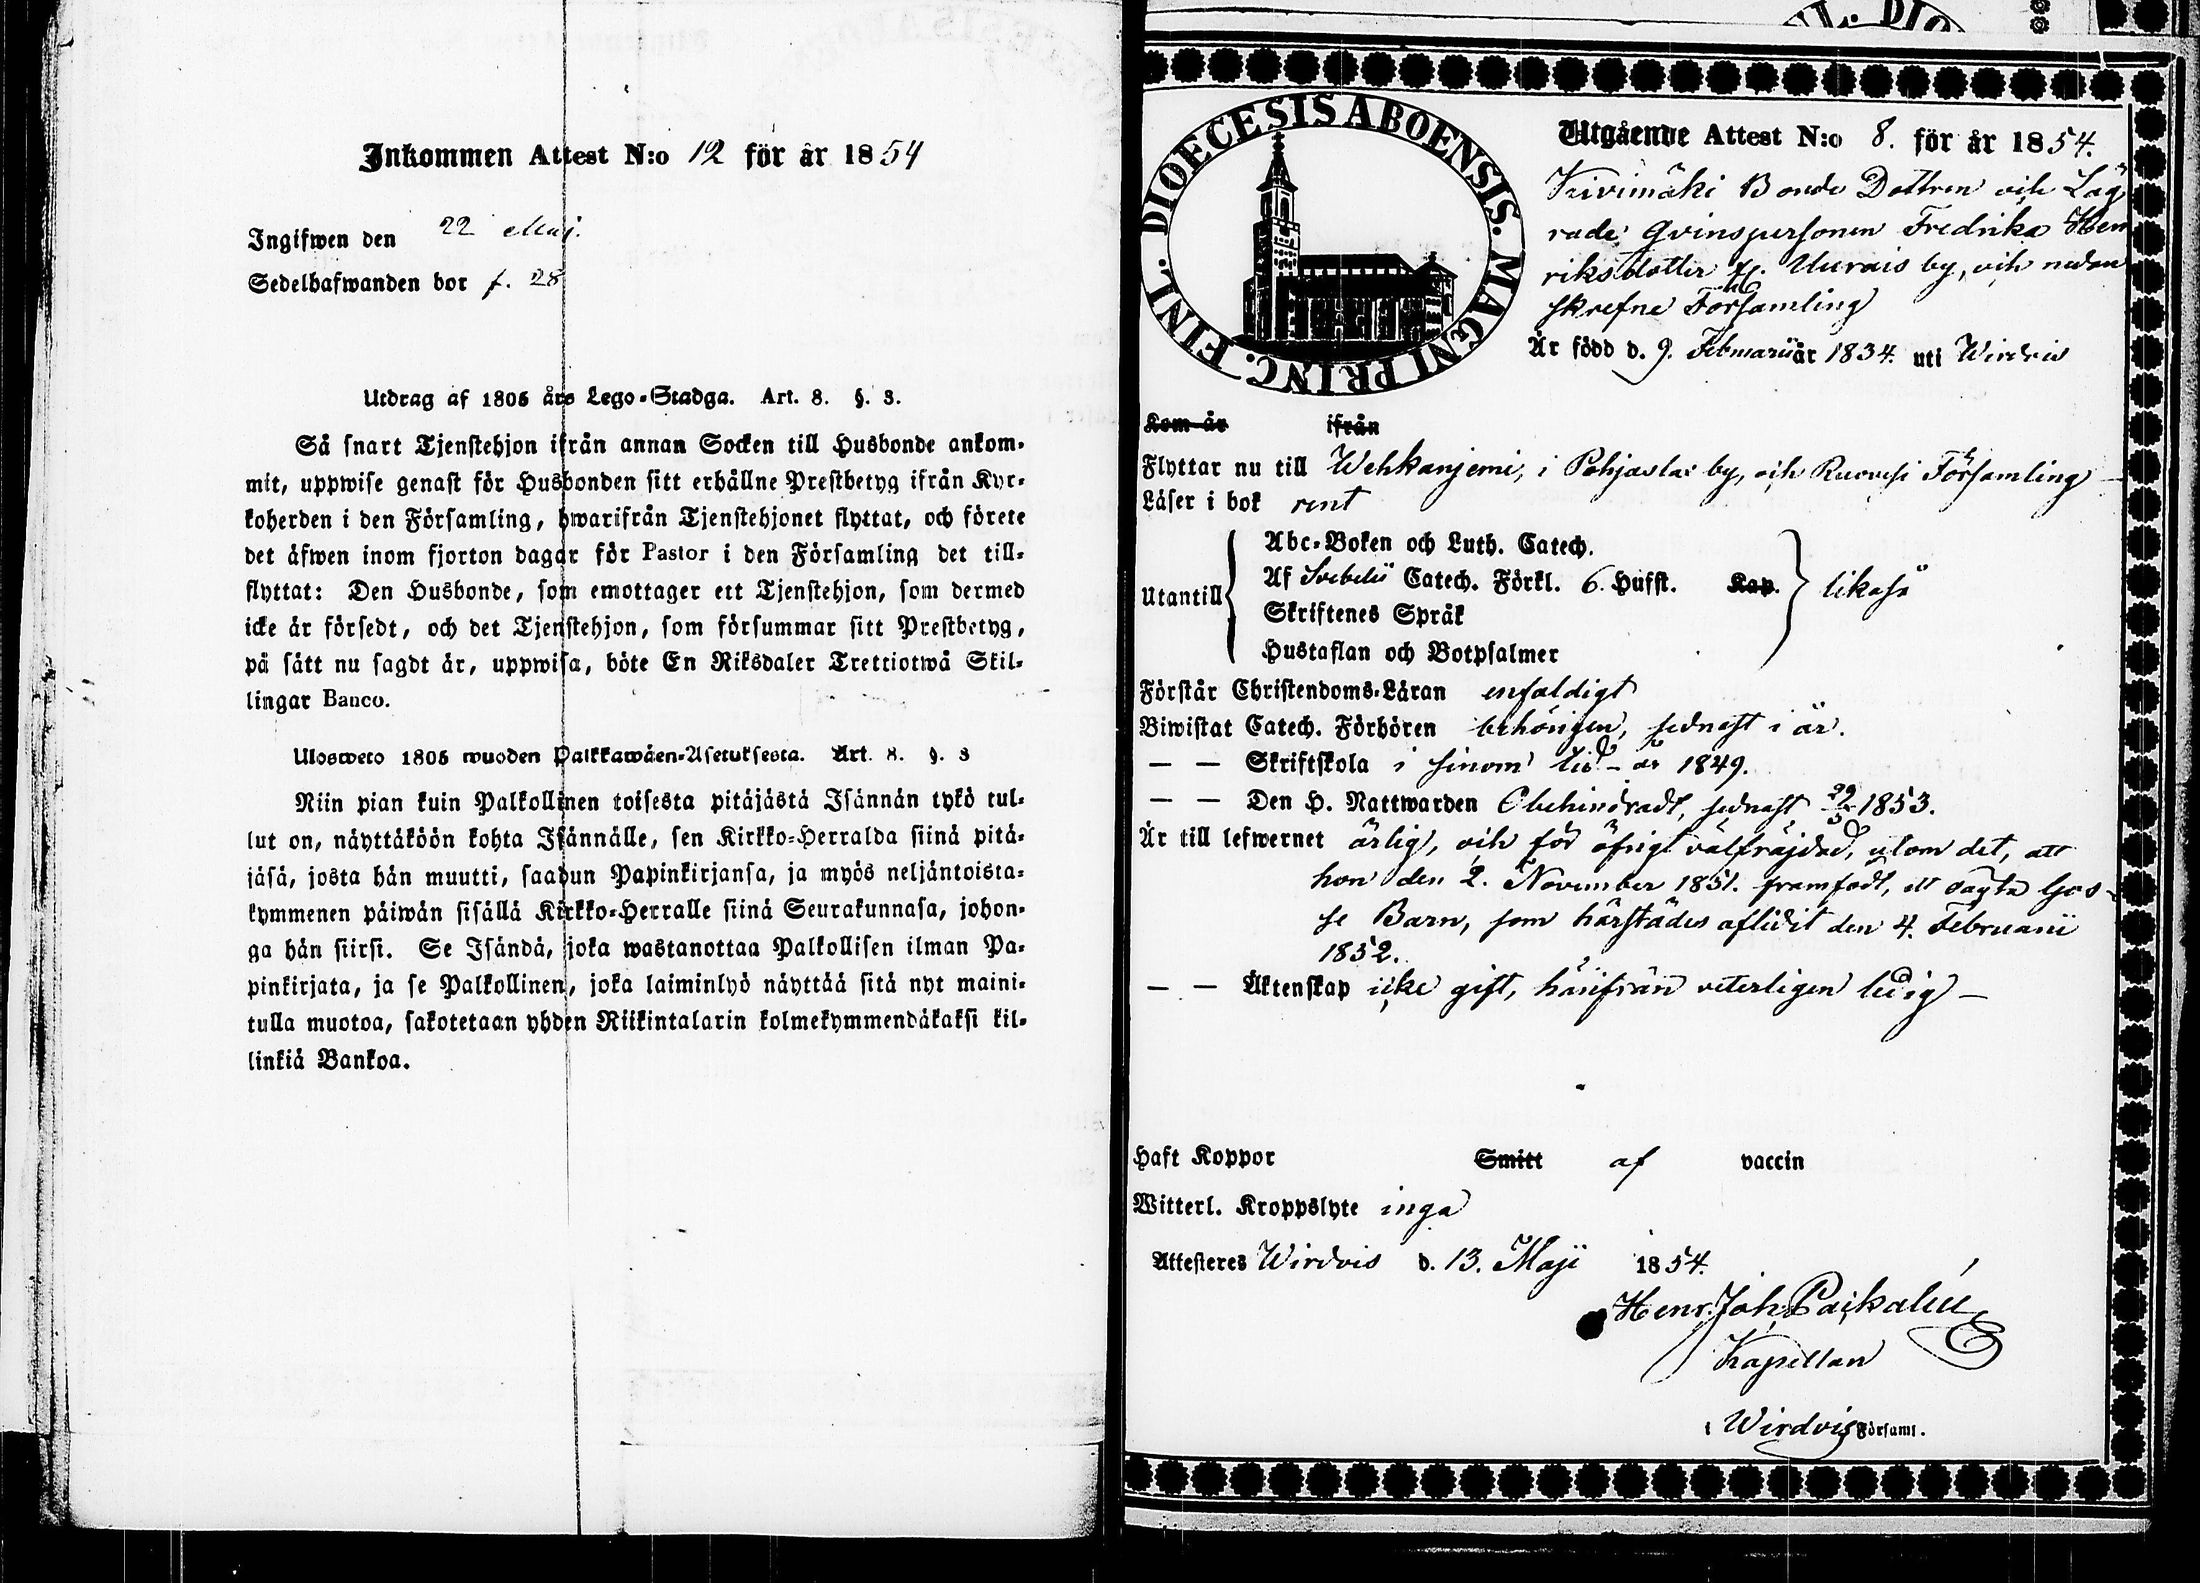 Inkommen Attest N:o 12 för år 1854
Ingifwen den 22 Maj.
Sedelhafwanden bor f. 28
Utdrag af 1805 års Lego-Stadga. Art. 8. §. 3.
Så snart Tjenstehjon ifrån annan Socken till Husbonde ankom-
mit, uppwise genast för Husbonden sitt erhållne Prestbetyg ifrån Kyr-
koherden i den Församling, hwarifrån Tjenstehjonet flyttat, och förete
det äfwen inom fjorton dagar för Pastor i den Församling det till-
flyttat: Den Husbonde, som emottager ett Tjenstehjon, som dermed
icke är försedt, och det Tjenstehjon, som försummar sitt Prestbetyg,
på sätt nu sagdt är, uppwisa, böte En Riksdaler Trettiotwå Skil-
lingar Banco.
Ulosweto 1805 wuoden Palkkawäen-Asetuksesta. Art. 8. §. 3
Niin pian kuin Palkollinen toisesta pitäjästä Isännän tykö tul-
lut on, näyttäköön kohta Isännälle, sen Kirkko-Herralda siinä pitä-
jäsä, josta hän muutti, saadun Papinkirjansa, ja myös neljäntoista-
kymmenen päiwän sisällä Kirkko-Herralle siinä Seurakunnasa, johon-
ga hän siirsi. Se Isändä, joka wastanottaa Palkollisen ilman Pa-
pinkirjata, ja se Palkollinen, joka laiminlyö näyttää sitä nyt maini-
tulla muotoa, sakotetaan yhden Riikintalarin kolmekymmendäkaksi kil-
linkiä Bankoa.
DIOECESIS ABOENSIS. MAGNI PRINC. FINL.
Utgående Attest N:o 8. för år 1854.
Kivimäki Bonde Dottren och Läg
rade Qvinspersonen Fredrika Hen
riksdotter fr. Uurais by, och nedan
skrefne Församling
Är född d. 9. Februarii år 1834. uti Wirdois
Kom år ifrån
Flyttar nu till Wehkanjemi, i Pohjaslax by, och Ruovesi Församling
Läser i bok rent
Utantill
Abc-Boken och Luth. Catech.
Af Svebelii Catech. Förkl. 6. Hufst. Kap.
Skriftenes Språk
Hustaflan och Botpsalmer
likaså
Förstår Christendoms-Läran enfaldigt
Biwistat Catech. Förhören behörigen, sednast i år.
— — Skriftskola i sinom tid – år 1849.
— — Den H. Nattwarden Obehindradt, sednast 29/5 1853.
Är till lefwernet ärlig, och för öfrigt välfräjdad, utom det, att
hon den 2. November 1851. framfödt, ett oägta Gos-
se Barn, som härstädes aflidit den 4. Februarii
1852.
— — Äktenskap icke gift, härifrån veterligen ledig –
Haft Koppor Smitt af vaccin
Witterl. Kroppslyte inga
Attesteres Wirdois d. 13. Maji 1854.
Henr. Joh.
Kapellan
i Wirdois Församl.